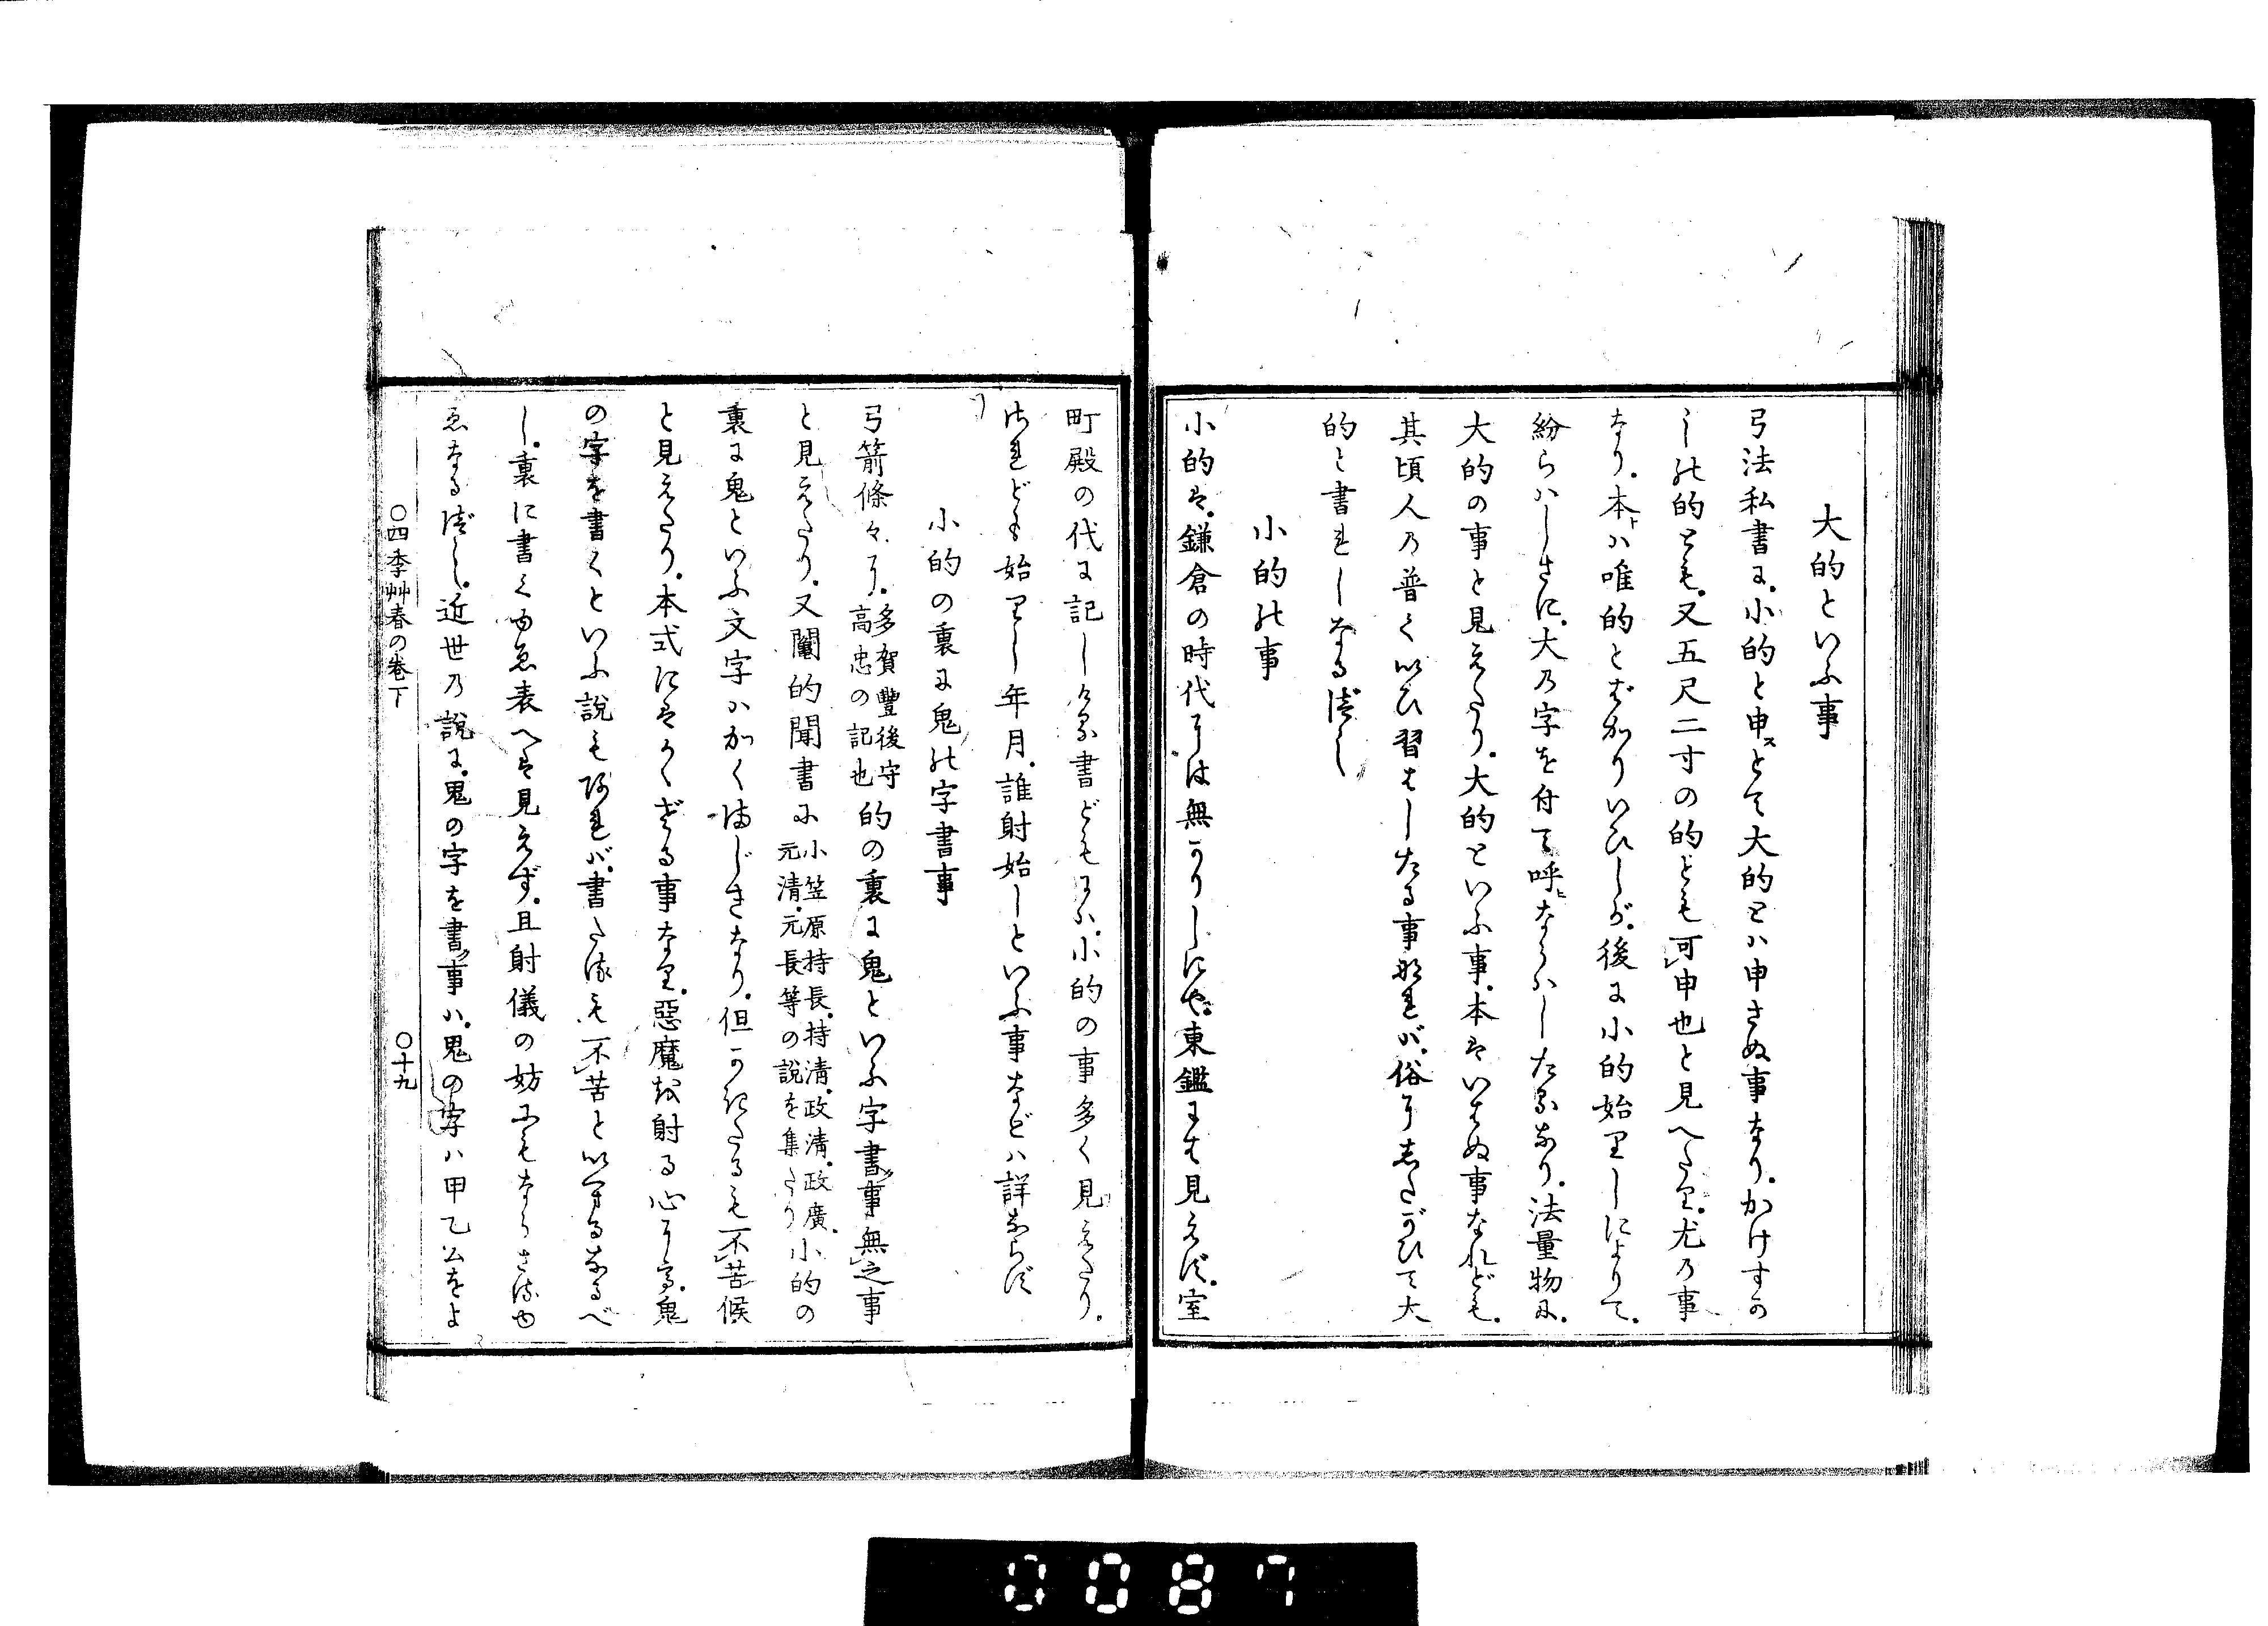 大的といふ事
弓法私書に。小的と申スとて大的とハ申さぬ事なり。かけすの
しの的とも。又五尺二寸の的とも可レ申也と見へたり。尤の事
なり。本トハ唯的とばかりいひしが。後に小的始りしによりて。
紛らハしさに。大の字を付て呼ヒならハしたるなり。法量物に。
大的の事と見えたり。大的といふ事。本はいはぬ事なれども。
其頃人の普くいひ習はしたる事なれバ。俗にしたがひて大
的と書れしなるべし
小的の事
小的は。鎌倉の時代には無かりしにや。東鑑にも見えず。室
町殿の代に記しける書どもにハ。小的の事多く見えたり。
されども始りし年月。誰射始しといふ事などハ詳ならず
小的の裏に鬼の字書事
弓箭條々に。多賀豐後守高忠の記也 的の裏に鬼といふ字書ク事無レ之事
と見えたり。又圍的聞書に 小笠原持長。持清。政清。政廣。元清。元長等の説を集たり 小的の
裏に鬼といふ文字ハかくまじきなり。但かきたるも不レ苦候
と見えたり。本式にはかくざる事なり。惡魔を射る心にて。鬼
の字を書くといふ説もあれバ。書たるも不レ苦といへるなるべ
し。裏に書くゆゑ表へは見えず。且射儀の妨にもならざるゆ
ゑなるべし。近世の説に。鬼の字を書ク事ハ。鬼の字ハ甲乙ムをよ
〇四季艸春の巻下
〇十九
0087